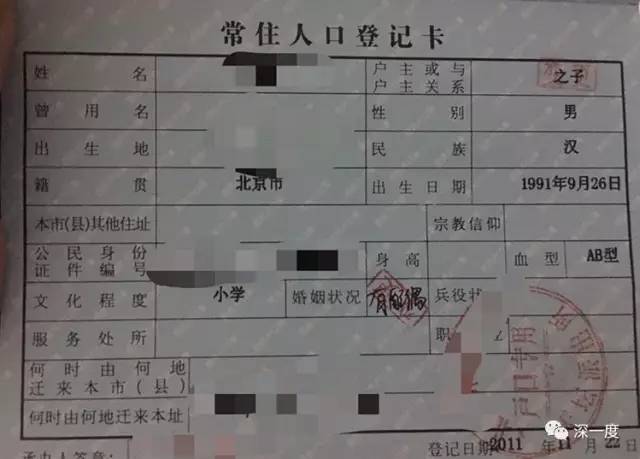 常住人口登记卡
姓名 户主或与户主关系 之子
曾用名 性别 男
出生地 民族 汉
籍贯 北京市 出生日期 1991年9月26日
本市(县)其他住址 宗教信仰
公民身份证件编号 身高 血型 AB型
文化程度 小学 婚姻状况 有配偶 兵役状
服务处所 职
何时由何地迁来本市(县)
何时由何地迁来本址
承办人签章: 登记日期 2011年11月22日
户口专用
深一度